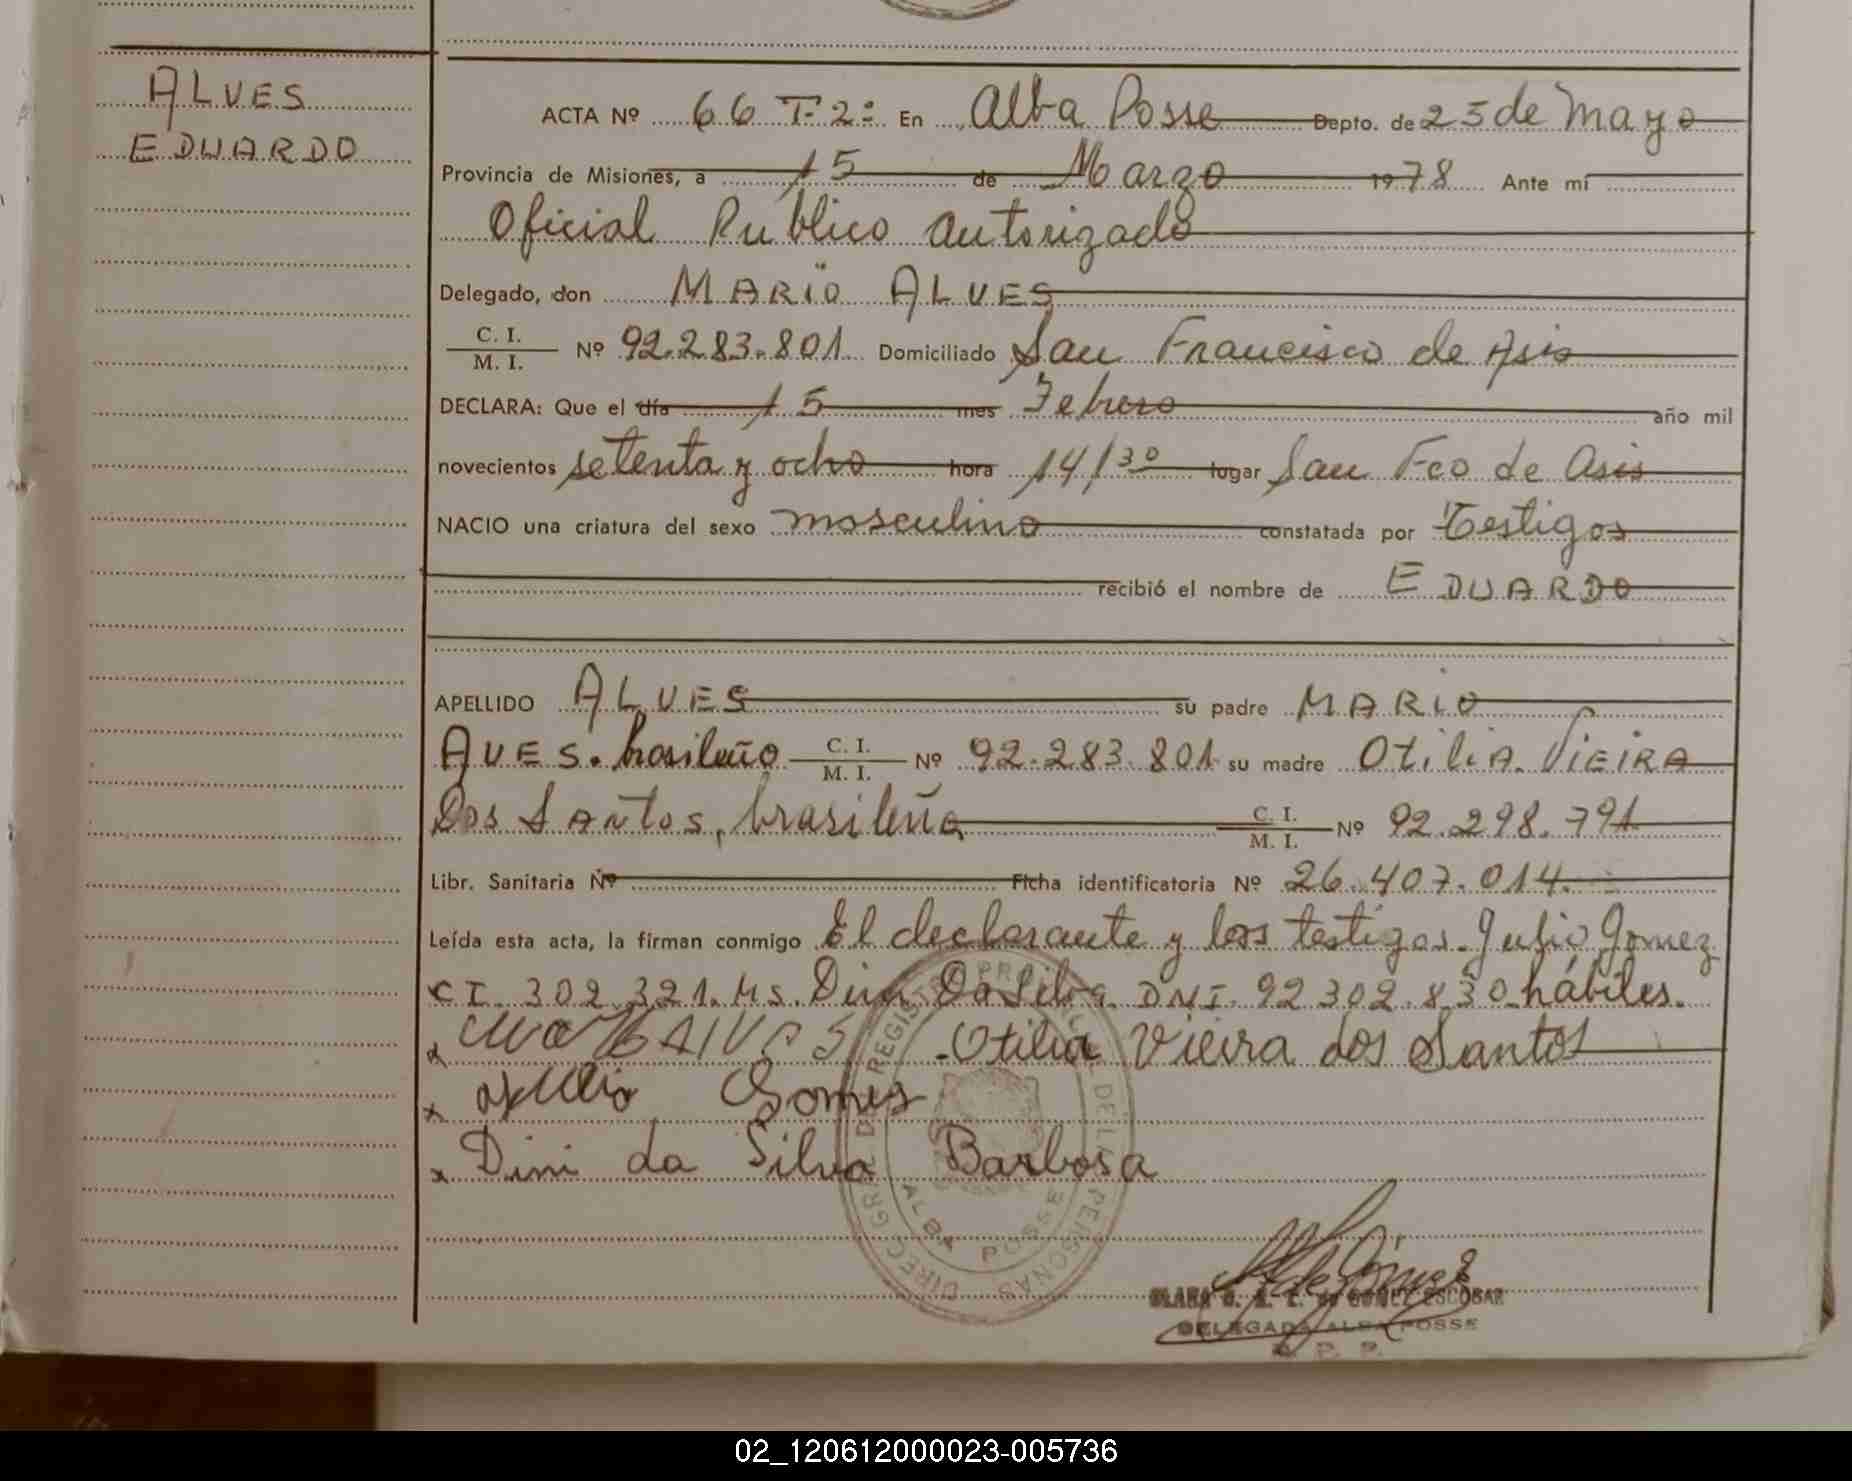 ALVES
EDUARDO
ACTA Nº 66 T-2º En Alba Posse Depto. de 25 de Mayo
Provincia de Misiones, a 15 de Marzo 1978 Ante mí
Oficial Publico autorizado
Delegado, don MARIO ALVES
C. I.
M. I. Nº 92.283.801 Domiciliado San Francisco de Asis
DECLARA: Que el día 15 mes Febrero año mil
novecientos setenta y ocho hora 14/30 lugar San Fco de Asis
NACIO una criatura del sexo masculino constatada por Testigos
recibió el nombre de EDUARDO
APELLIDO ALVES su padre MARIO
AVES. brasileño C. I. M. I. Nº 92.283.801 su madre OtiliA VIEIRA
Dos SANtos, brasileña C. I. M. I. Nº 92.298.791
Libr. Sanitaria Nº Ficha identificatoria Nº 26.407.014.
Leída esta acta, la firman conmigo El declarante y los testigos. Julio Gomez
CI. 302.321. Ms. Dini Da Silva DNI. 92302.830 hábiles.
x Alves - Otilia Vieira dos Santos
x Julio Gomes
x Dini da Silva Barbosa
DIREC. GRAL. DE REGISTRO PROVINCIAL DE LA PERSONAS
ALBA POSSE
CLARA de GOMEZ ESCOBAR
DELEGADA ALBA POSSE
R. P. P.
02_120612000023-005736